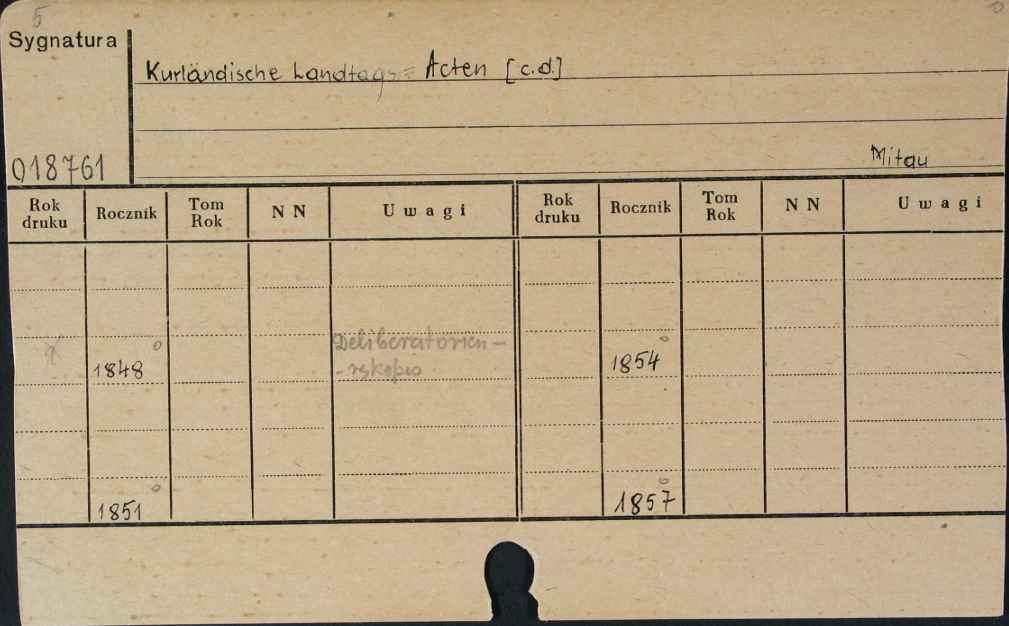 5
Sygnatura
Kurländische Landtags = Acten [c.d.]
018761
Mitau
Rok druku Rocznik Tom Rok N N Uwagi Rok druku Rocznik Tom Rok N N Uwagi
Deliberatorien -
1848 - rękopis 1854
1851 1857